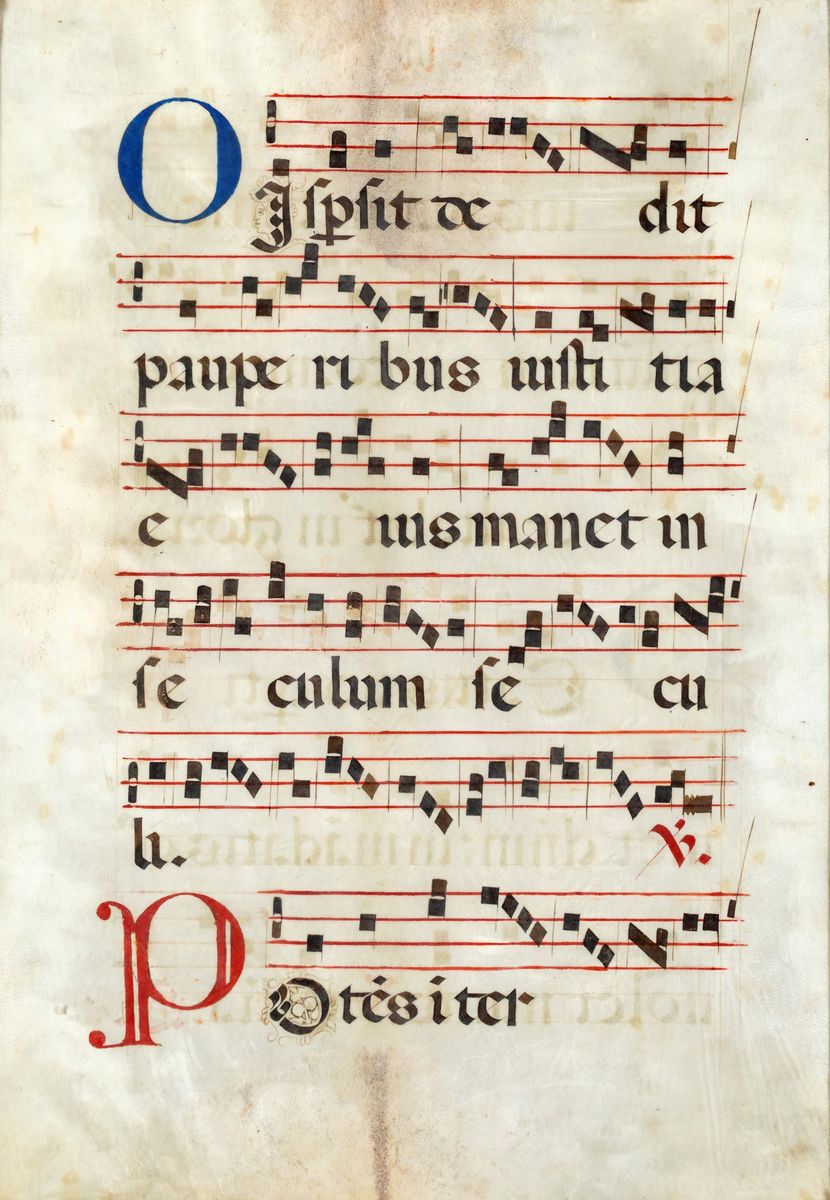 O Jspsit de dit
paupe ri bus iusti tia
e ius manet in
se culum se cu
li. V.
P Otēs i ter